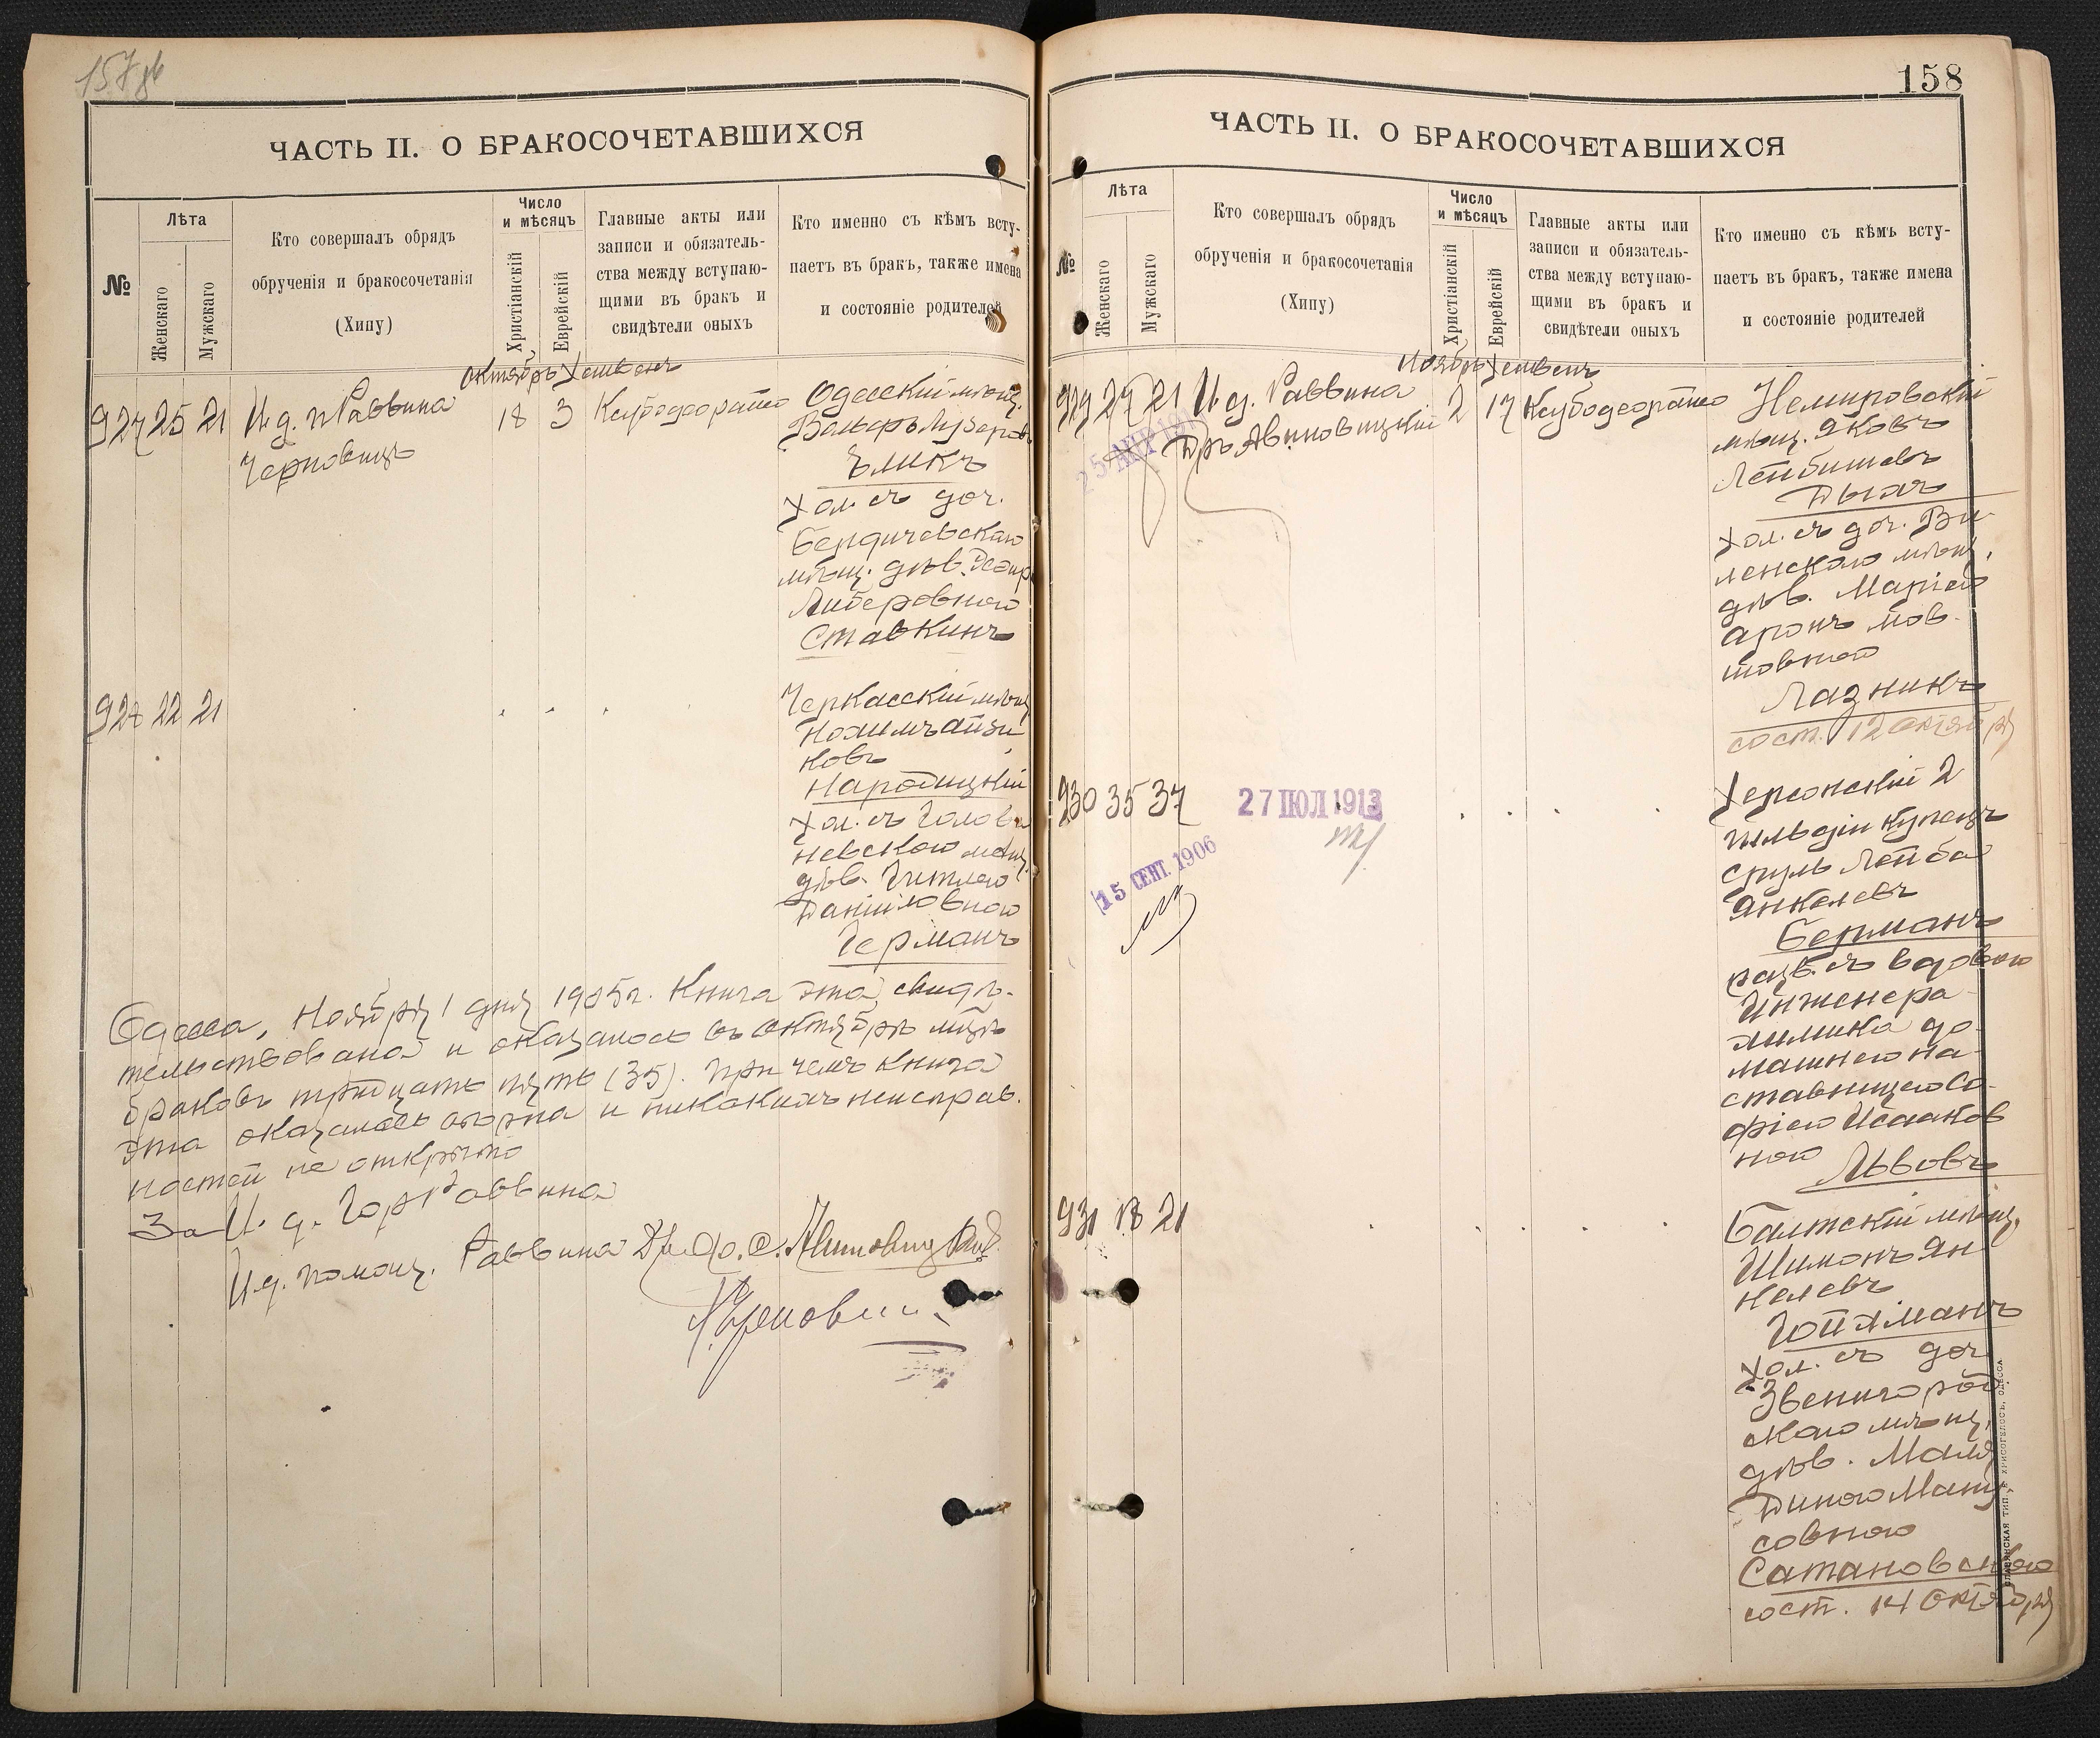 157об
ЧАСТЬ II. О БРАКОСОЧЕТАВШИХСЯ
№
Лѣта
Женскаго
Мужскаго
Кто совершалъ обрядъ
обрученія и бракосочетанія
(Хипу)
Число
и мѣсяцъ
Христіанскій
Еврейскій
Главные акты или
записи и обязатель-
ства между вступаю-
щими въ бракъ и
свидѣтели оныхъ
Кто именно съ кѣмъ всту-
паетъ въ бракъ, также имена
и состояніе родителей
Октябрь Хешвенъ
927 25 21 И. д. Раввина
Черновицъ
18 3
Одесскій мѣщ.
Вольфъ Лузеровъ
Хол. съ доч.
Бердичевскаго
мѣщ. дѣв.
Либеровною
Ставкинъ
928 22 21
Черкасскій мѣщ.
Нохимъ Айзи
ковъ
Народицкій
Хол. съ Голова
невскою мѣщ.
дѣв. Гитлею
Даніиловною
Германъ
Одесса, Ноября 1 дня 1905 г. Книга эта свидѣ-
тельствована и оказалось въ октябрѣ мцѣ
браковъ тридцать пять (35). При чемъ книга
эта оказалась вѣрна и никакихъ неисправ.
ностей не открыто
За И. д. Гор. Раввина
И. д. помощ. Раввина
158
ЧАСТЬ II. О БРАКОСОЧЕТАВШИХСЯ
№
Лѣта
Женскаго
Мужскаго
Кто совершалъ обрядъ
обрученія и бракосочетанія
(Хипу)
Число
и мѣсяцъ
Христіанскій
Еврейскій
Главные акты или
записи и обязатель-
ства между вступаю-
щими въ бракъ и
свидѣтели оныхъ
Кто именно съ кѣмъ всту-
паетъ въ бракъ, также имена
и состояніе родителей
Ноябрь Хешвенъ
929 27 21 И. д. Раввина
Дръ Авиновицкій
2 17
25 АПР
Немировскій
мѣщ. Яковъ
Лейбишевъ
Дыхъ
Хол. съ доч. Ви-
ленскаго мѣщ.
дѣв. Маріею
Аронъ Мов-
шовною
Лазникъ
сост. 12 октября
930 35 37
27 ІЮЛ 1913
15 СЕНТ. 1906
Херсонскій 2
гильдіи купецъ
Сруль Лейба
Янкелевъ
Берманъ
разв. съ вдовою
Инженера
химика до-
машнею на-
ставницею Со-
фіею Исааков
ною
Львовъ
931 18 21
Балтскій мѣщ.
Шимонъ Ян
келевъ
Гойхманъ
Хол. съ доч
Звенигород
скаго мѣщ.
дѣв. Маля
Диною Ману
совною
Сатановскаго
сост. 14 октября